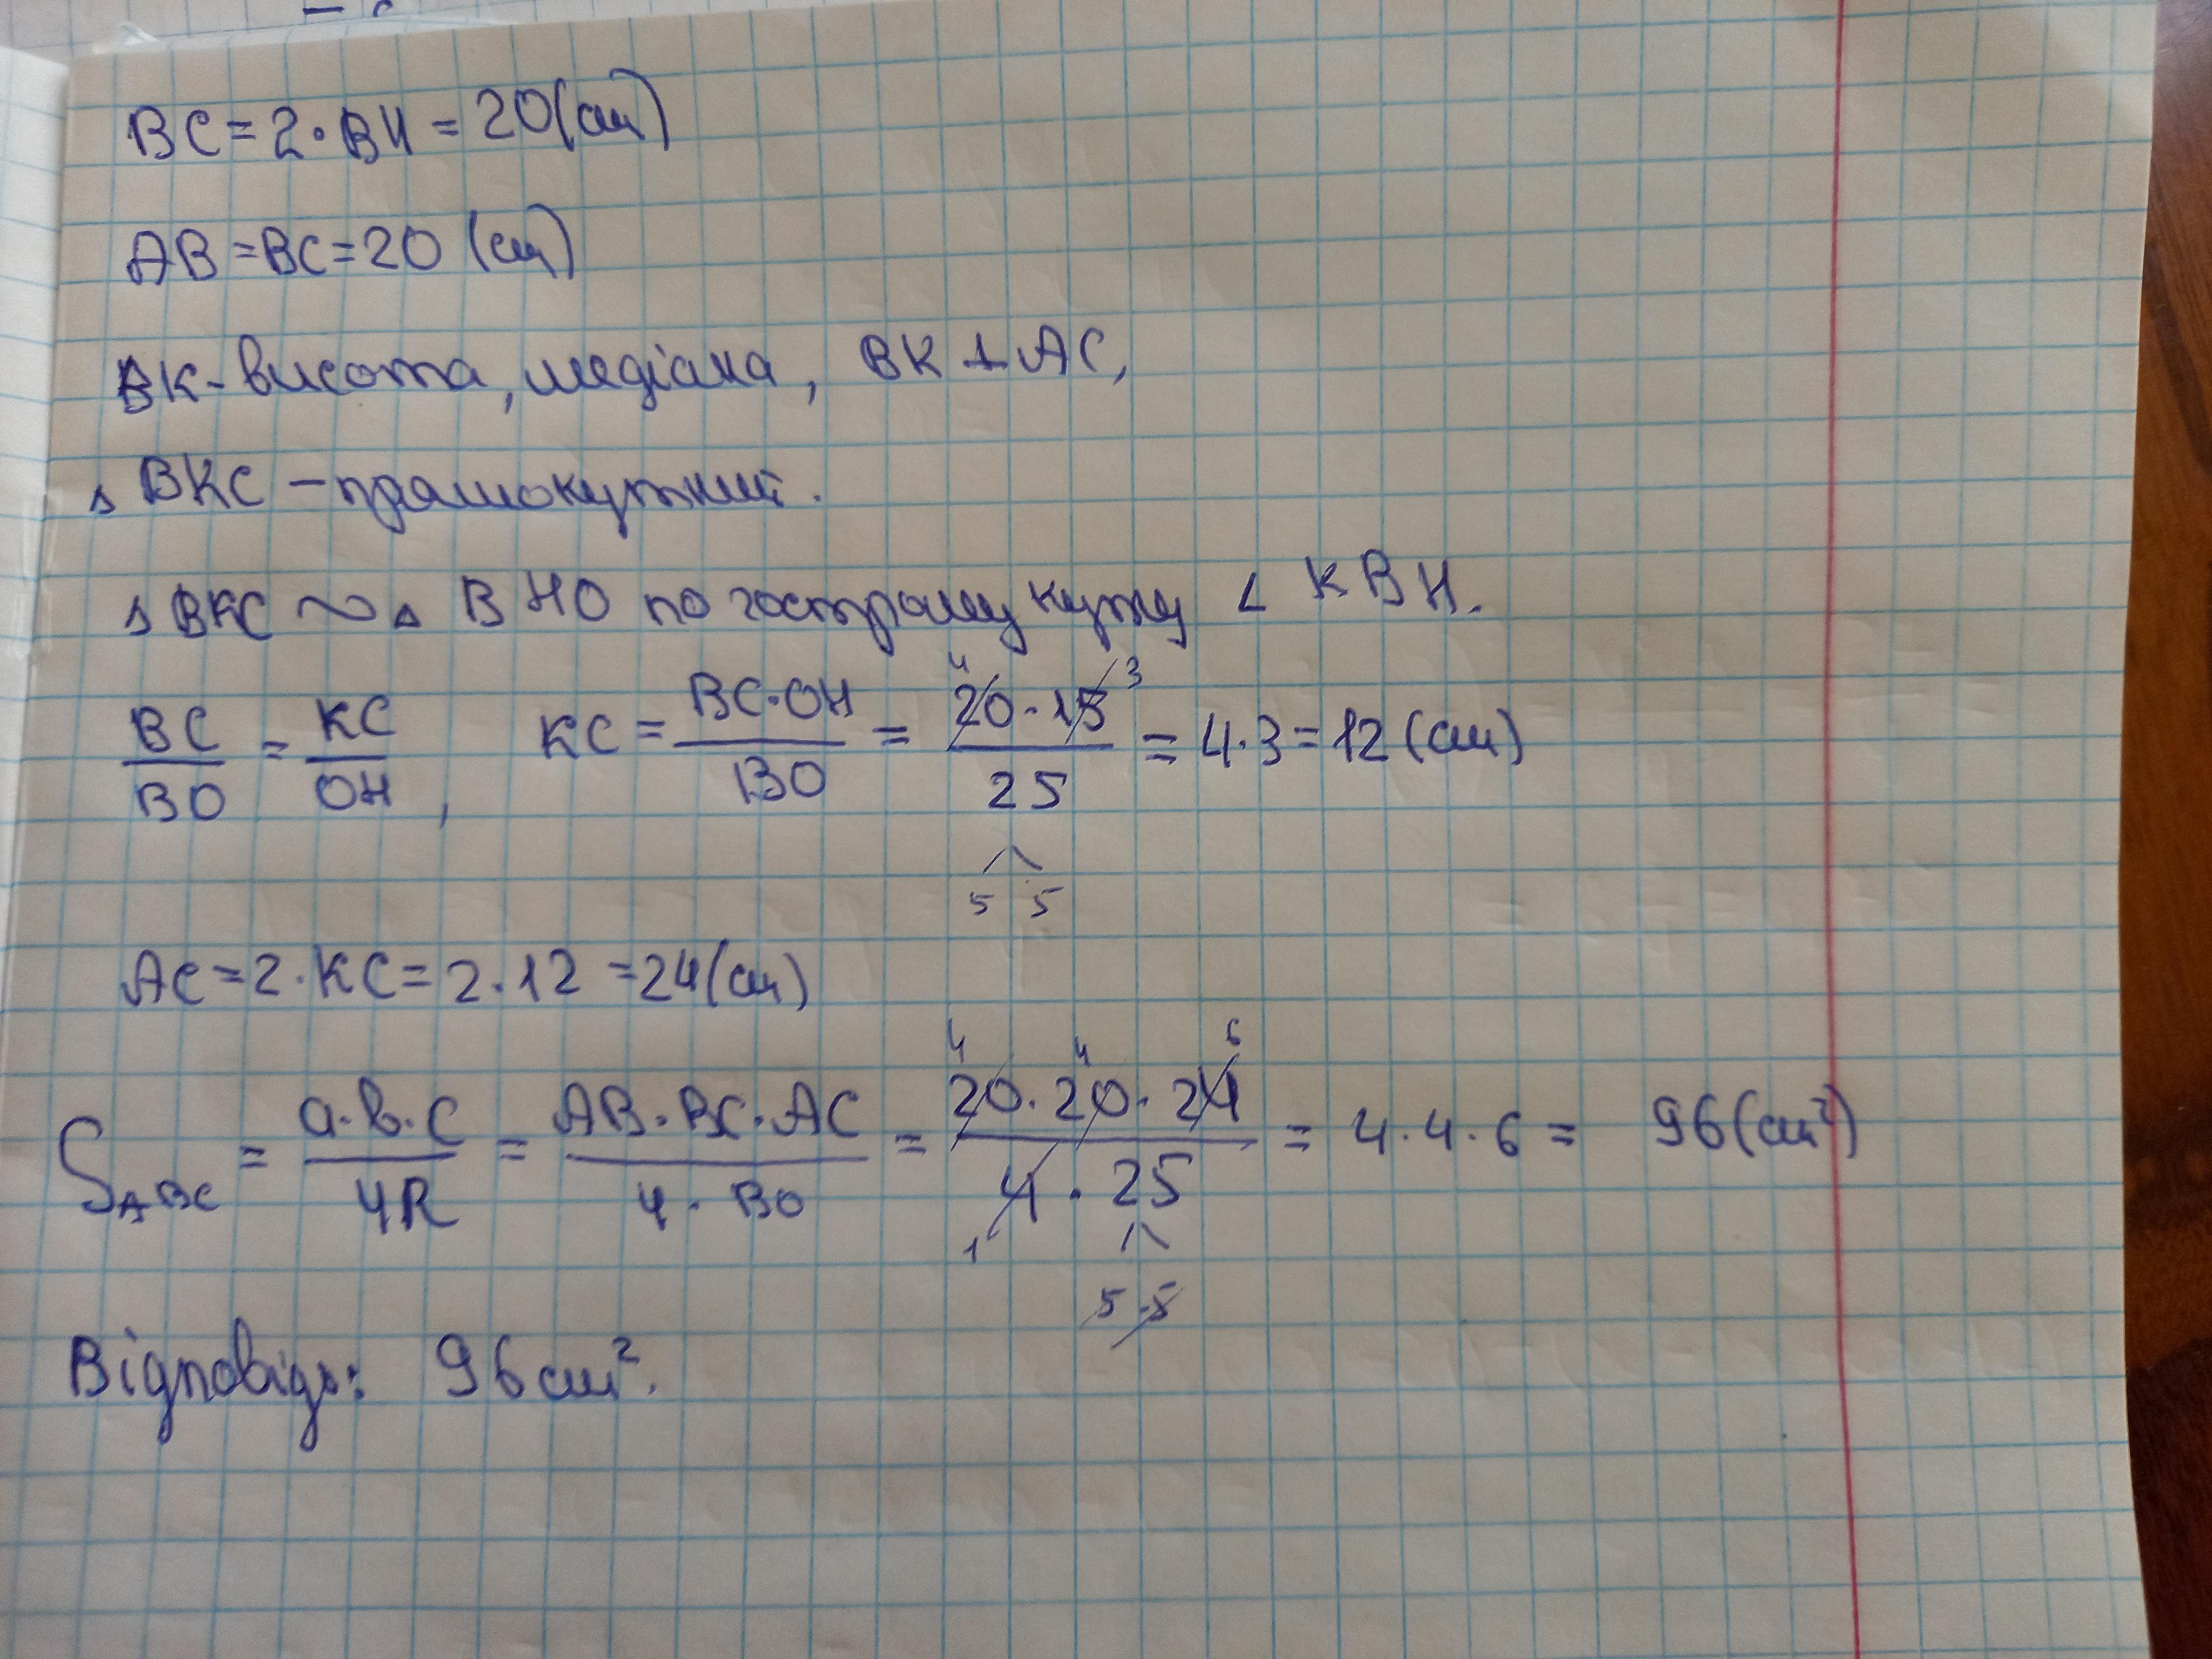 BC = 2 · BH = 20 (см)
AB = BC = 20 (см)
BK - висота, медіана, BK ⊥ AC,
△ BKC - прямокутний.
△ BKC ~ △ BHO по гострому куту ∠ KBH.
BC/BO = KC/OH, KC = BC·OH/BO = 20·15/25 = 4·3 = 12 (см)
4 3
5 5
AC = 2·KC = 2·12 = 24 (см)
S_ABC = a·b·c/4R = AB·BC·AC/4·BO = 20·20·24/4·25 = 4·4·6 = 96 (см²)
4 4 6
1
5 5
Відповідь: 96 см².